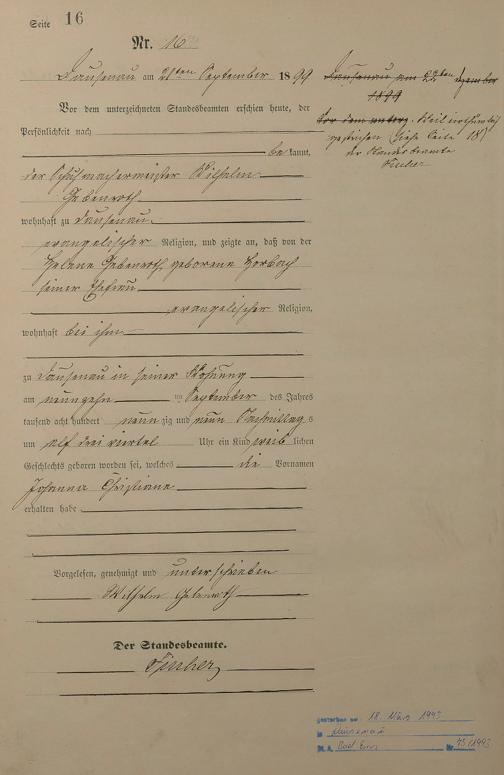 Seite 16
Nr. 16
Dausenau am 21ten September 1899
Vor dem unterzeichneten Standesbeamten erschien heute, der
Persönlichkeit nach
be kannt,
der Schuhmachermeister Wilhelm
Gebenroth
wohnhaft zu Dausenau
evangelischer Religion, und zeigte an, daß von der
Helene Gebenroth, geborene Horbach
seiner Ehefrau
evangelischer Religion,
wohnhaft bei ihm
zu Dausenau in seiner Wohnung
am neunzehn ten September des Jahres
tausend acht hundert neun zig und neun Nachmittag s
um elf drei viertel Uhr ein Kind weib lichen
Geschlechts geboren worden sei, welches die Vornamen
Johanna Christiane
erhalten habe
Vorgelesen, genehmigt und unterschrieben
Wilhelm Gebenroth
Der Standesbeamte.
Dausenau am
1899
Vor dem unterz. Weil irrthümlich
gestrichen (siehe Seite 18)
der Standesbeamte
gestorben am 18. März 1993
in
St. A. Bad Ems Nr. 75/1993